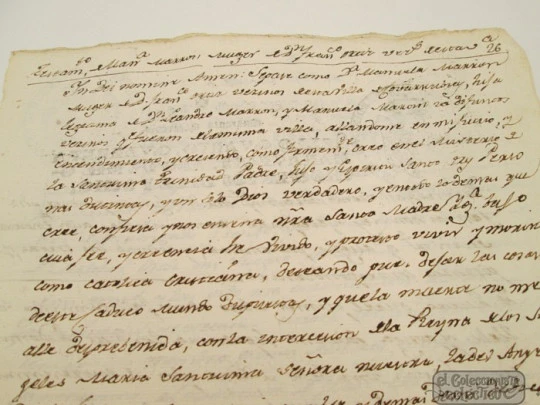 Testam.to Man.a Marron, Muger de D.n Fran.co Ortiz vez.o de esta V.a 26
In Dei nomine Amen: Sepase como D.a Manuela Marron
Muger de D.n Fran.co Ortiz vecinos de esta Villa de
legitima de D.n Leandro Marron, y Manuela difuntos
vecinos q.e fueron de la misma villa, allandome en mi juicio, y
entendimiento, y creiendo, como firmem.te creo en el Misterio de
la Santissima Trinidad Padre, hijo y Espiritu Santo tres Perso
nas distintas, y un solo Dios verdadero, y en todo lo demas que
cree, confiesa y nos enseña nra Santa Madre Ig.a bajo
cuia fee, y creencia he vivido, y protesto vivir y morir
como catolica cristiana, deseando para dejar las cosas
de este caduco mundo dispuestas, y que la muerte no me
alle desprebenida, con la intercesion de la Reyna de los
geles Maria Santissima Señora nuestra, todos Ang
demas
el Coleccionista
eclectico